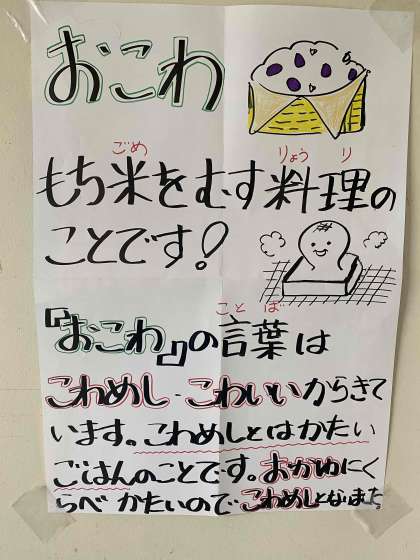 おこわ
ごめ りょうり
もち米をむす料理の
ことです!
ことば
『おこわ』の言葉は
こわめし・こわいいからきて
います。こわめしとはかたい
ごはんのことです。おかゆにく
らべかたいので こわめしとなりました